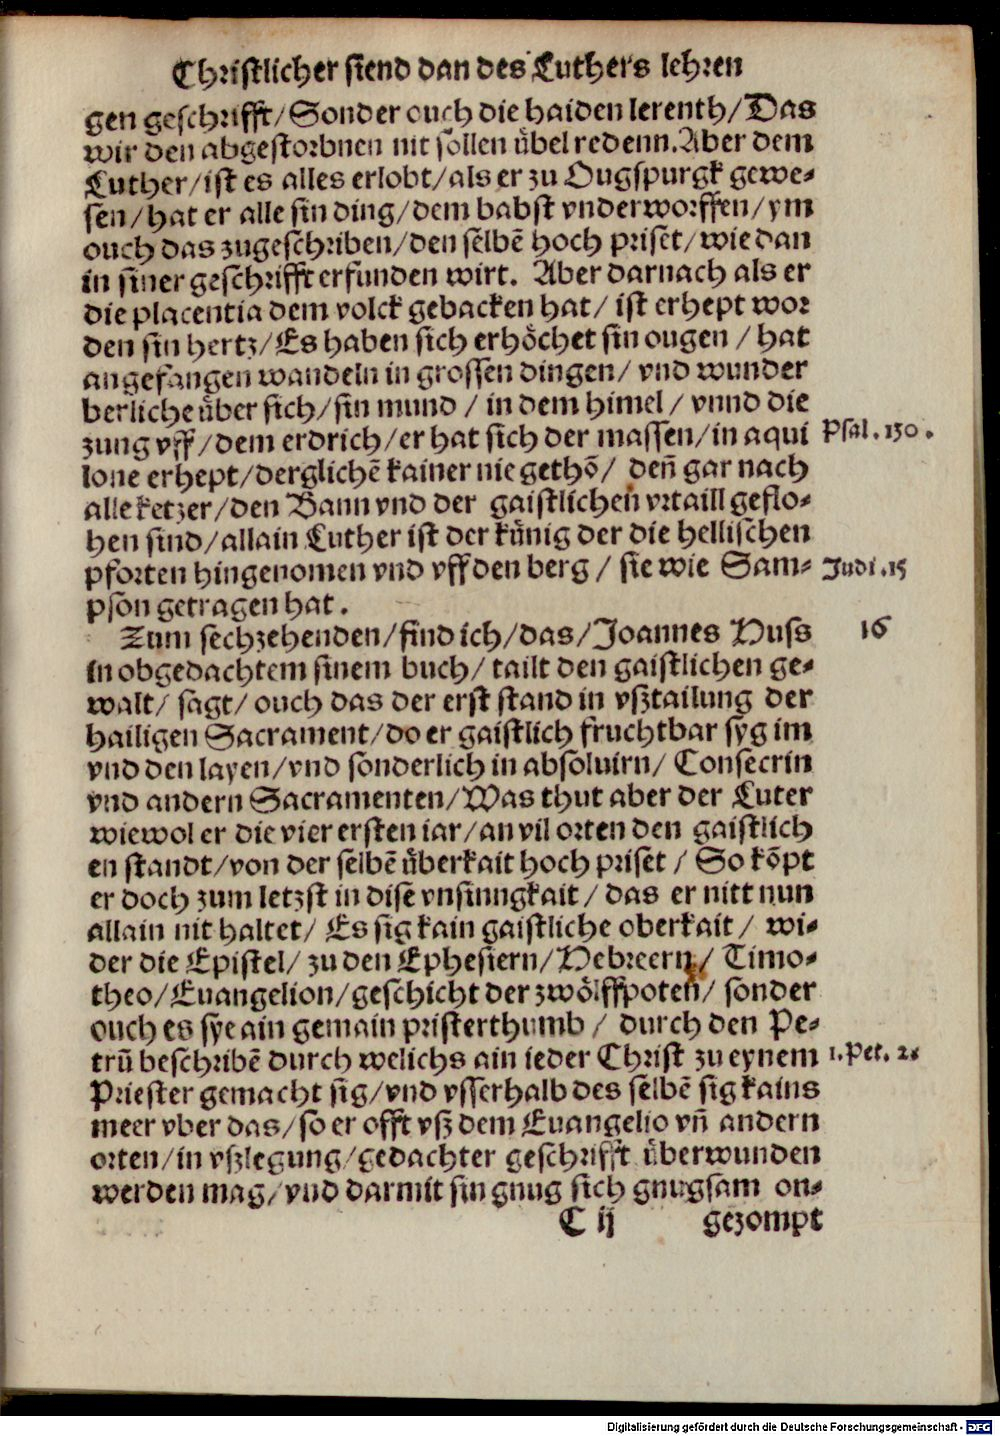 Christlicher siend dan des Luthers lehren
gen geschrifft/Sonder ouch die haiden lerenth/Das
wir den abgestorbnen nit söllen übel redenn.Aber dem
Luther/ist es alles erlobt/als er zu Ougspurgk gewe-
sen/hat er alle sin ding/dem babst vnderworffen/ym
ouch das zugeschriben/den selbē hoch priset/wie dan
in siner geschrifft erfunden wirt. Aber darnach als er
die placentia dem volck gebacken hat/ ist erhept wor
den sin hertz/Es haben sich erhöchet sin ougen /hat
angefangen wandeln in grossen dingen/ vnd wunder
berliche über sich/sin mund /in dem himel/ vnnd die
zung vff/dem erdrich/er hat sich der massen/in aqui Psal.130.
lone erhept/derglichē kainer nie gethō/ deñ gar nach
alle ketzer/den Bann vnd der gaistlichen vrtaill geflo-
hen sind/allain Luther ist der künig der die hellischen
pforten hingenomen vnd vff den berg / sie wie Sam- Judi.15
pson getragen hat.
Zum sechzehenden/find ich/das/Joannes Huss 16
in obgedachtem sinem buch/ tailt den gaistlichen ge-
walt/ sagt/ ouch das der erst stand in vsztailung der
hailigen Sacrament/do er gaistlich fruchtbar syg im
vnd den layen/vnd sonderlich in absoluirn/ Consecrin
vnd andern Sacramenten/Was thut aber der Luter
wiewol er die vier ersten iar/an vil orten den gaistlich
en standt/von der selbē überkait hoch priset / So kōpt
er doch zum letzst in dise vnsinngkait/ das er nitt nun
allain nit haltet/ Es sig kain gaistliche oberkait/ wi-
der die Epistel/ zu den Ephesiern/Hebreern/ Timo-
theo/Euangelion/geschicht der zwölffpoten/ sonder
ouch es sye ain gemain pristerthumb / durch den Pe-
trū beschribē durch welichs ain ieder Christ zu eynem 1.Pet. 2.
Priester gemacht sig/vnd vsserhalb des selbē sig kains
meer vber das/so er offt vsz dem Euangelio vñ andern
orten/in vszlegung/gedachter geschrifft überwunden
werden mag/vnd darmit sin gnug sich gnugsam on-
C ij gezompt
Digitalisierung gefördert durch die Deutsche Forschungsgemeinschaft - DFG